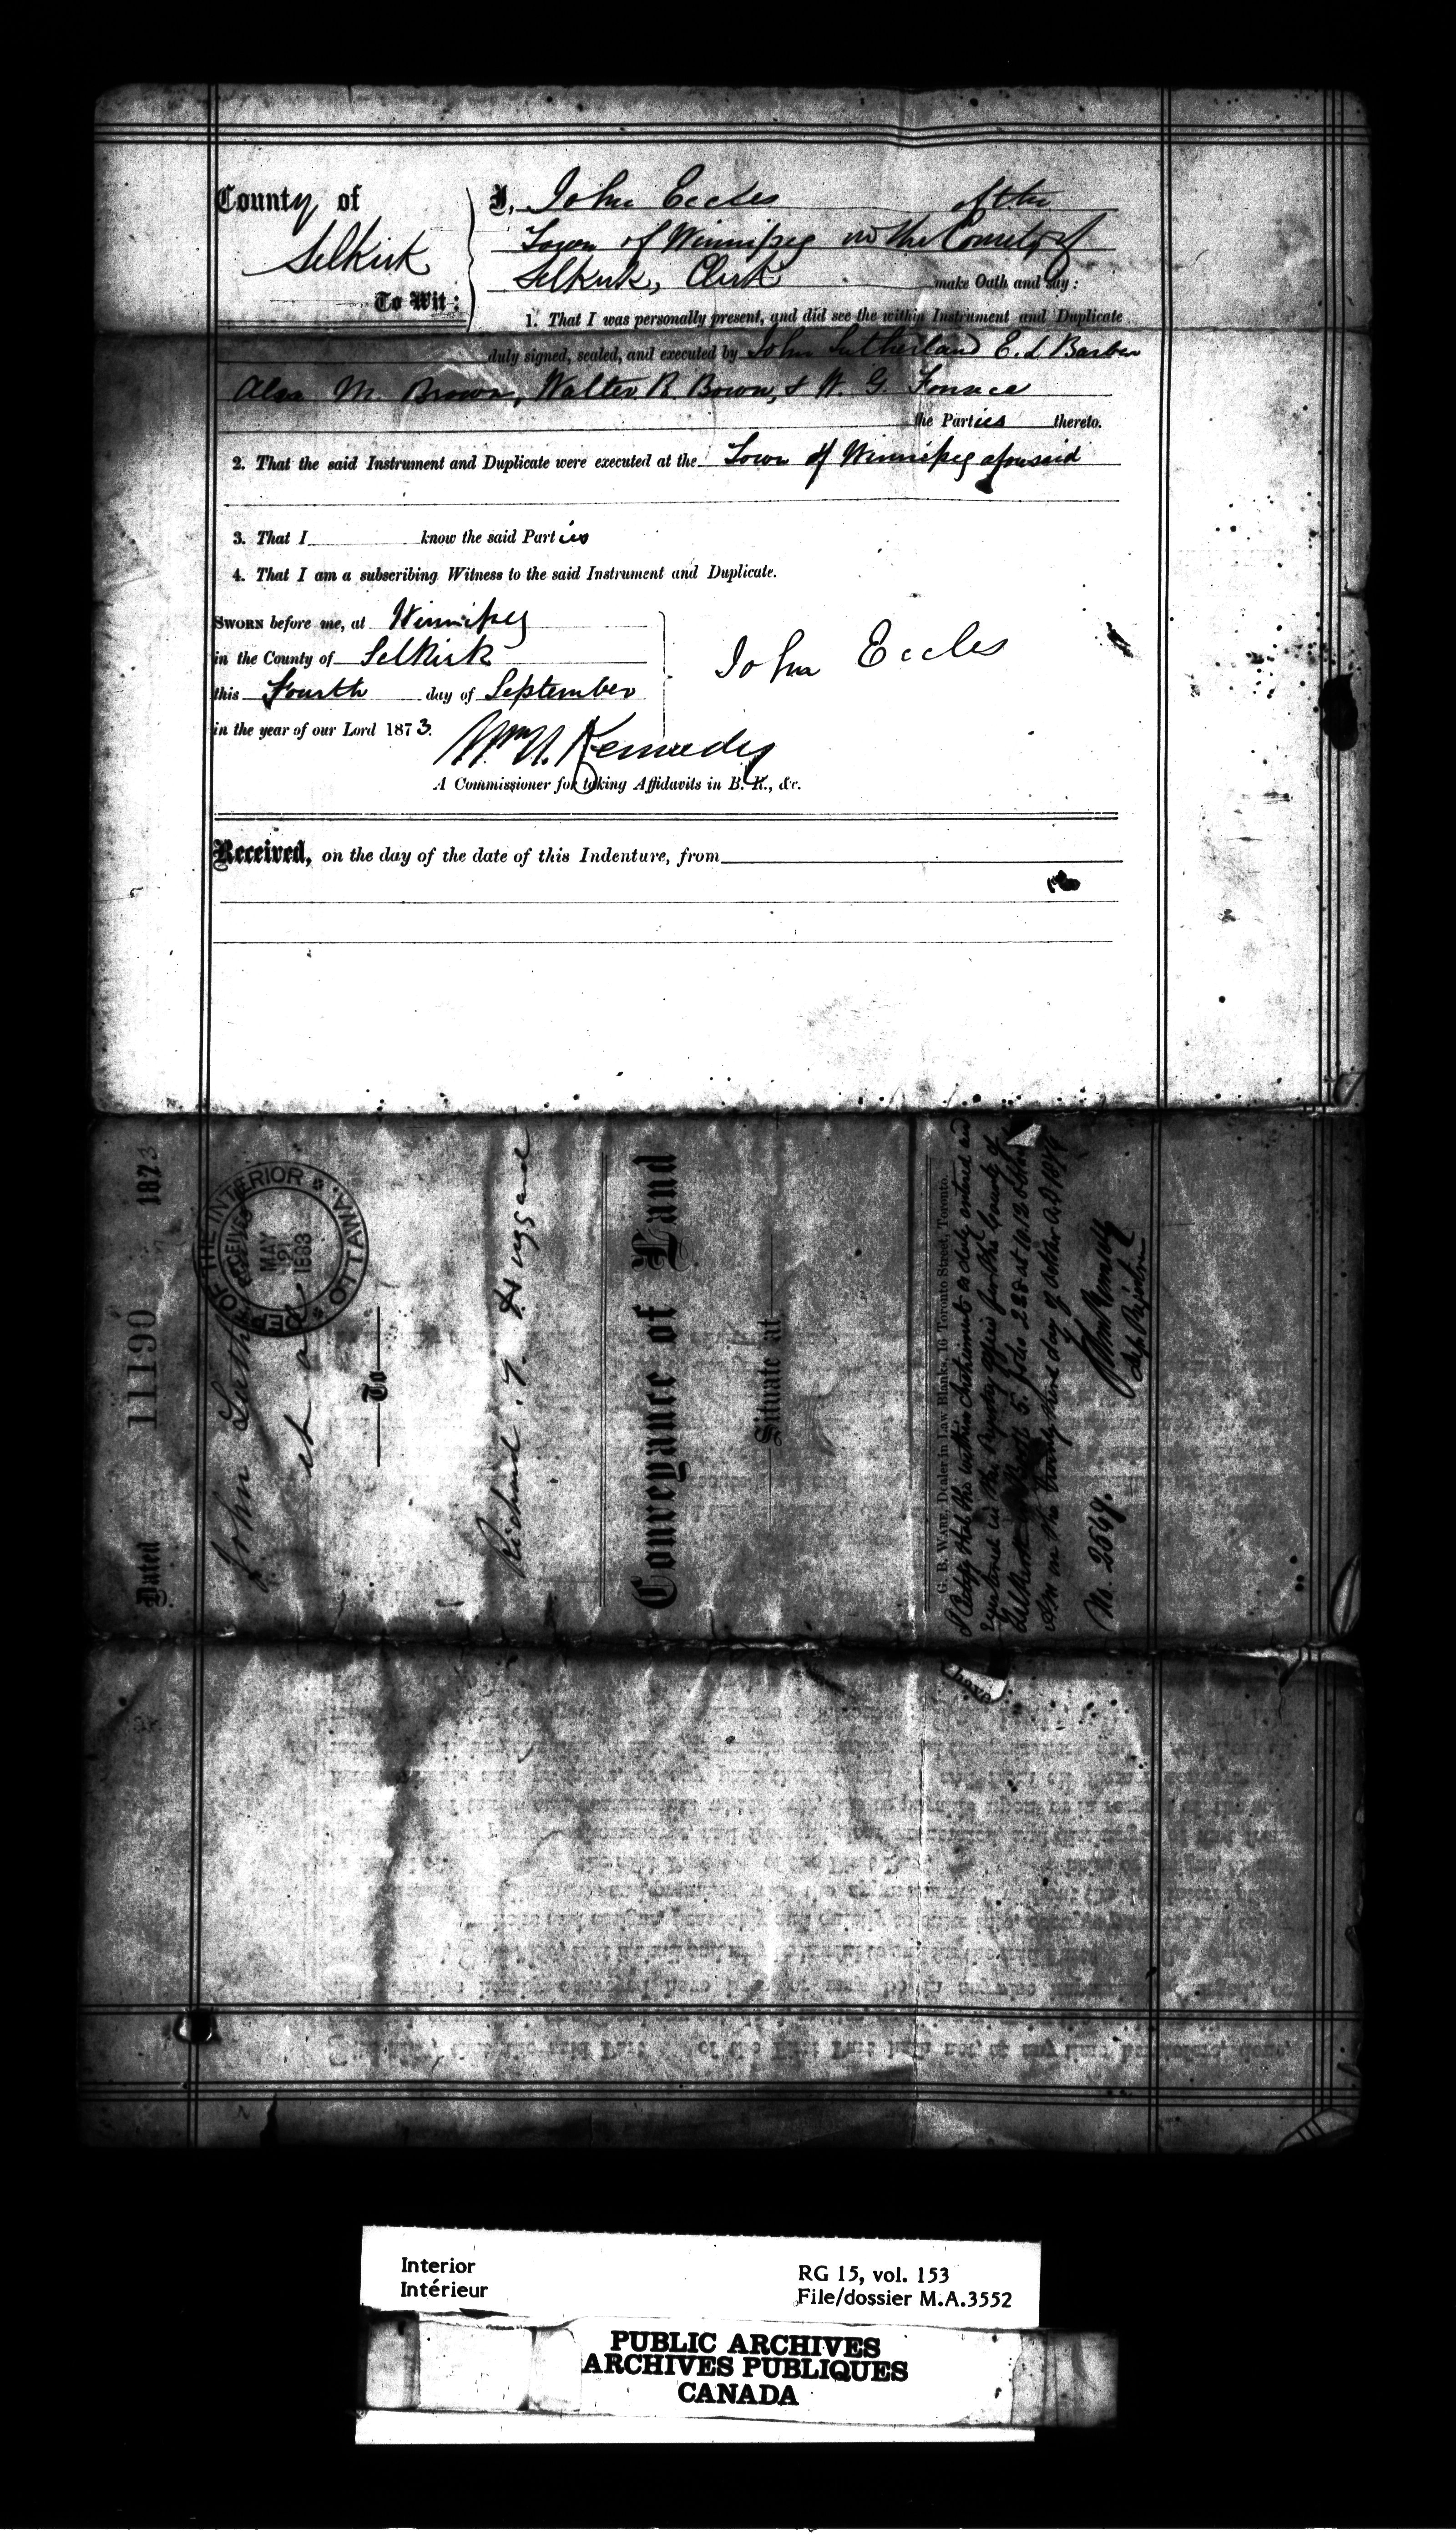 County of
Selkirk
To Wit:
I, John Eccles of the
Town of Winnipeg in the County of
Selkirk, Clerk make Oath and say:
1. That I was personally present, and did see the within Instrument and Duplicate
duly signed, sealed, and executed by John Sutherland E. L Barber
Alex M. Brown, Walter R. Bown, & W. G. Fonseca
the Parties thereto.
2. That the said Instrument and Duplicate were executed at the Town of Winnipeg aforesaid
3. That I know the said Parties
4. That I am a subscribing Witness to the said Instrument and Duplicate.
Sworn before me, at Winnipeg
in the County of Selkirk
this Fourth day of September
in the year of our Lord 1873.
John Eccles
Wm N. Kennedy
A Commissioner for taking Affidavits in B. R., &c.
Received, on the day of the date of this Indenture, from
Dated 1873
11190
DEPT. OF THE INTERIOR OTTAWA
RECEIVED
MAY
21
1883
John Suth
et al
To
Richard . Huggard
Conveyance of Land
Situate at
G. B. Ware, Dealer in Law Blanks, 16 Toronto Street, Toronto.
I Certify that the within Instrument is duly entered and
registered in the Registry Office for the County of
Selkirk Book 5. folio 288 at 10.12 o'clock
A.m on the twenty third day of October A.D. 187
No. 2569.
Wm Kennedy
Dep Registrar
Interior
Intérieur
RG 15, vol. 153
File/dossier M.A.3552
PUBLIC ARCHIVES
ARCHIVES PUBLIQUES
CANADA